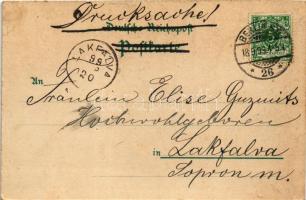 Drucksache!
Deutsche Reichspost
Postkarte
LAKFALVA
99
20
BE
26
An
Fräulein Elise Guzmits
Hochwohlgeboren
in Lakfalva
Sopron m.